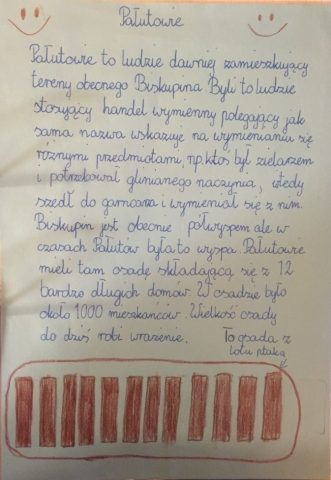 Pałutowie
Pałutowie to ludzie dawniej zamieszkujący
tereny obecnego Biskupina. Byli to ludzie
stosujący handel wymienny polegający jak
sama nazwa wskazuje na wymienianiu się
różnymi przedmiotami, np. ktoś był zielarzem
i potrzebował glinianego naczynia, wtedy
szedł do garncarza i wymieniał się z nim.
Biskupin jest obecnie półwyspem ale w
czasach Pałutów była to wyspa. Pałutowie
mieli tam osadę składającą się z 12
bardzo długich domów. W osadzie było
około 1000 mieszkańców. Wielkość osady
do dziś robi wrażenie.
To osada z
lotu ptaka